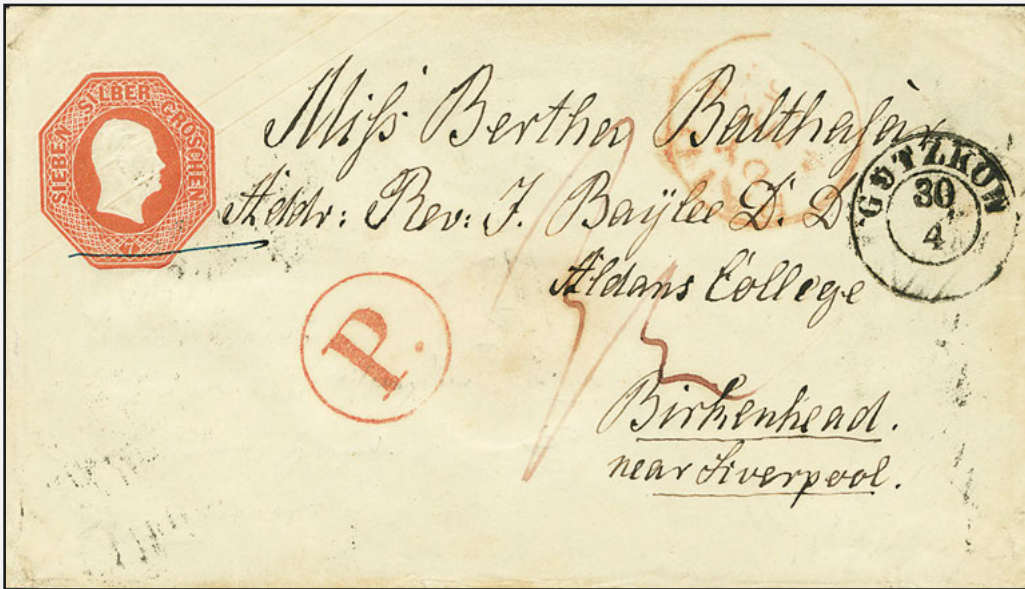 SIEBEN SILBER GROSCHEN
7
Miſs Bertha Balthasar
Addr: Rev: J. Baÿlee D. D
Aldans College
Birkenhead.
near Liverpool.
GÜTZKOW
30
4
P.